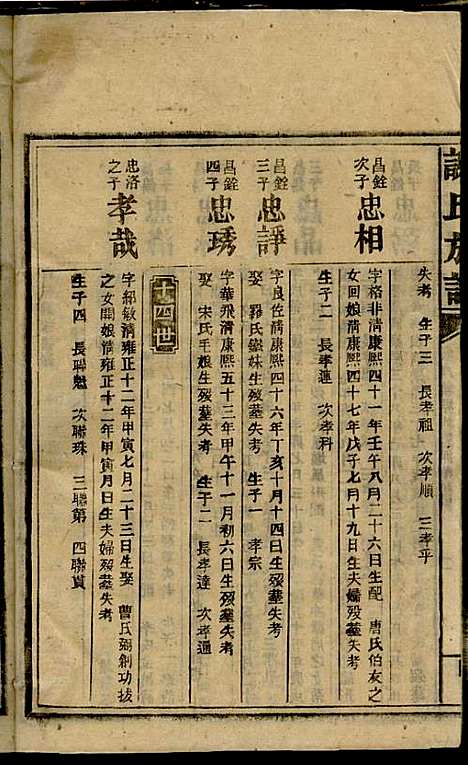 氏族譜
失考 生子三 長孝祖 次孝順 三孝平
昌銓次子 忠相
字格非清康熙四十一年壬午八月二十六日生配 唐氏伯友之
女回娘清康熙四十七年戊子七月十九日生夫婦歿墓失考
生子二 長孝蓮 次孝科
昌銓三子 忠諍
字良佐清康熙四十六年丁亥十月十四日生歿墓失考
娶 羅氏 妹生歿墓失考 生子一 孝宗
昌銓四子 忠琇
字華飛清康熙五十三年甲午十一月初六日生歿墓失考
娶 宋氏毛娘生歿墓失考 生子二 長孝達 次孝通
十四世
忠洛之子 孝哉
字紹敏清雍正十二年甲寅七月二十三日生娶 曹氏弼創功扳
之女開娘清雍正十二年甲寅 月 日生夫婦歿墓失考
生子四 長聯魁 次聯珠 三聯第 四聯貴